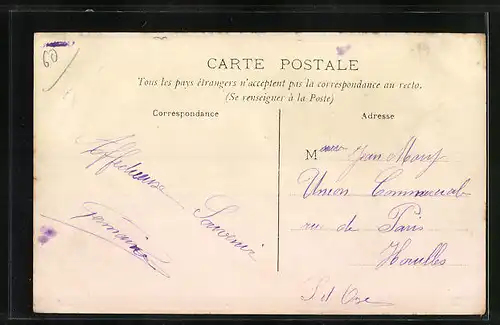 60
CARTE POSTALE
Tous les pays étrangers n'acceptent pas la correspondance au recto.
(Se renseigner à la Poste)
Correspondance
Adresse
Affectueux
Souvenir
M Jean
Union Commerciale
rue de Paris
Houilles
S et Oise